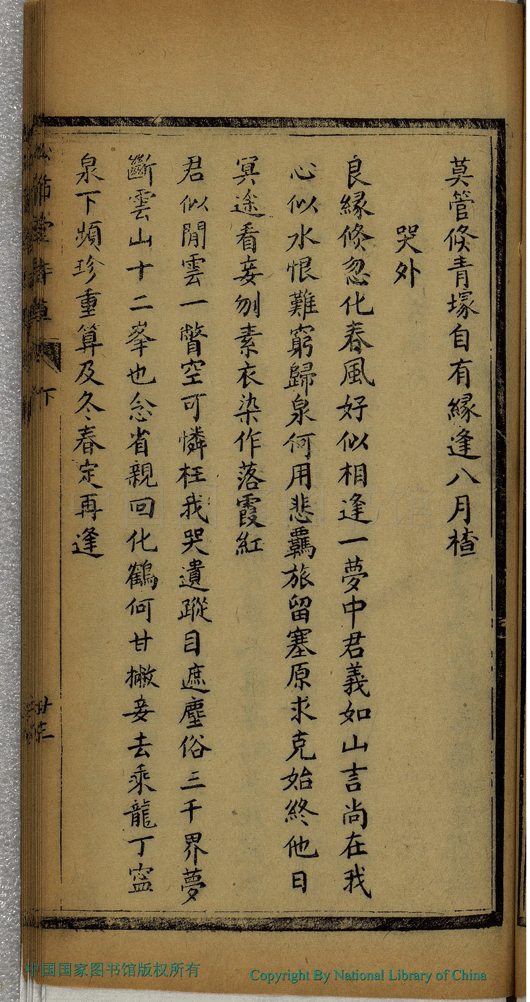 莫管倏青塚自有緣逢八月楂
哭外
良緣倏忽化春風好似相逢一夢中君義如山言尚在我
心似水恨難窮歸泉何用悲羈旅留塞原求克始終他日
冥途看妾刎素衣染作落霞紅
君似閒雲一瞥空可憐枉我哭遺蹤目遮塵俗三千界夢
斷雲山十二峯也忿省親回化鶴何甘撇妾去乘龍丁寍
泉下頻珍重算及冬春定再逢
節堂詩草
下
中国国家图书馆版权所有
Copyright By National Library of China